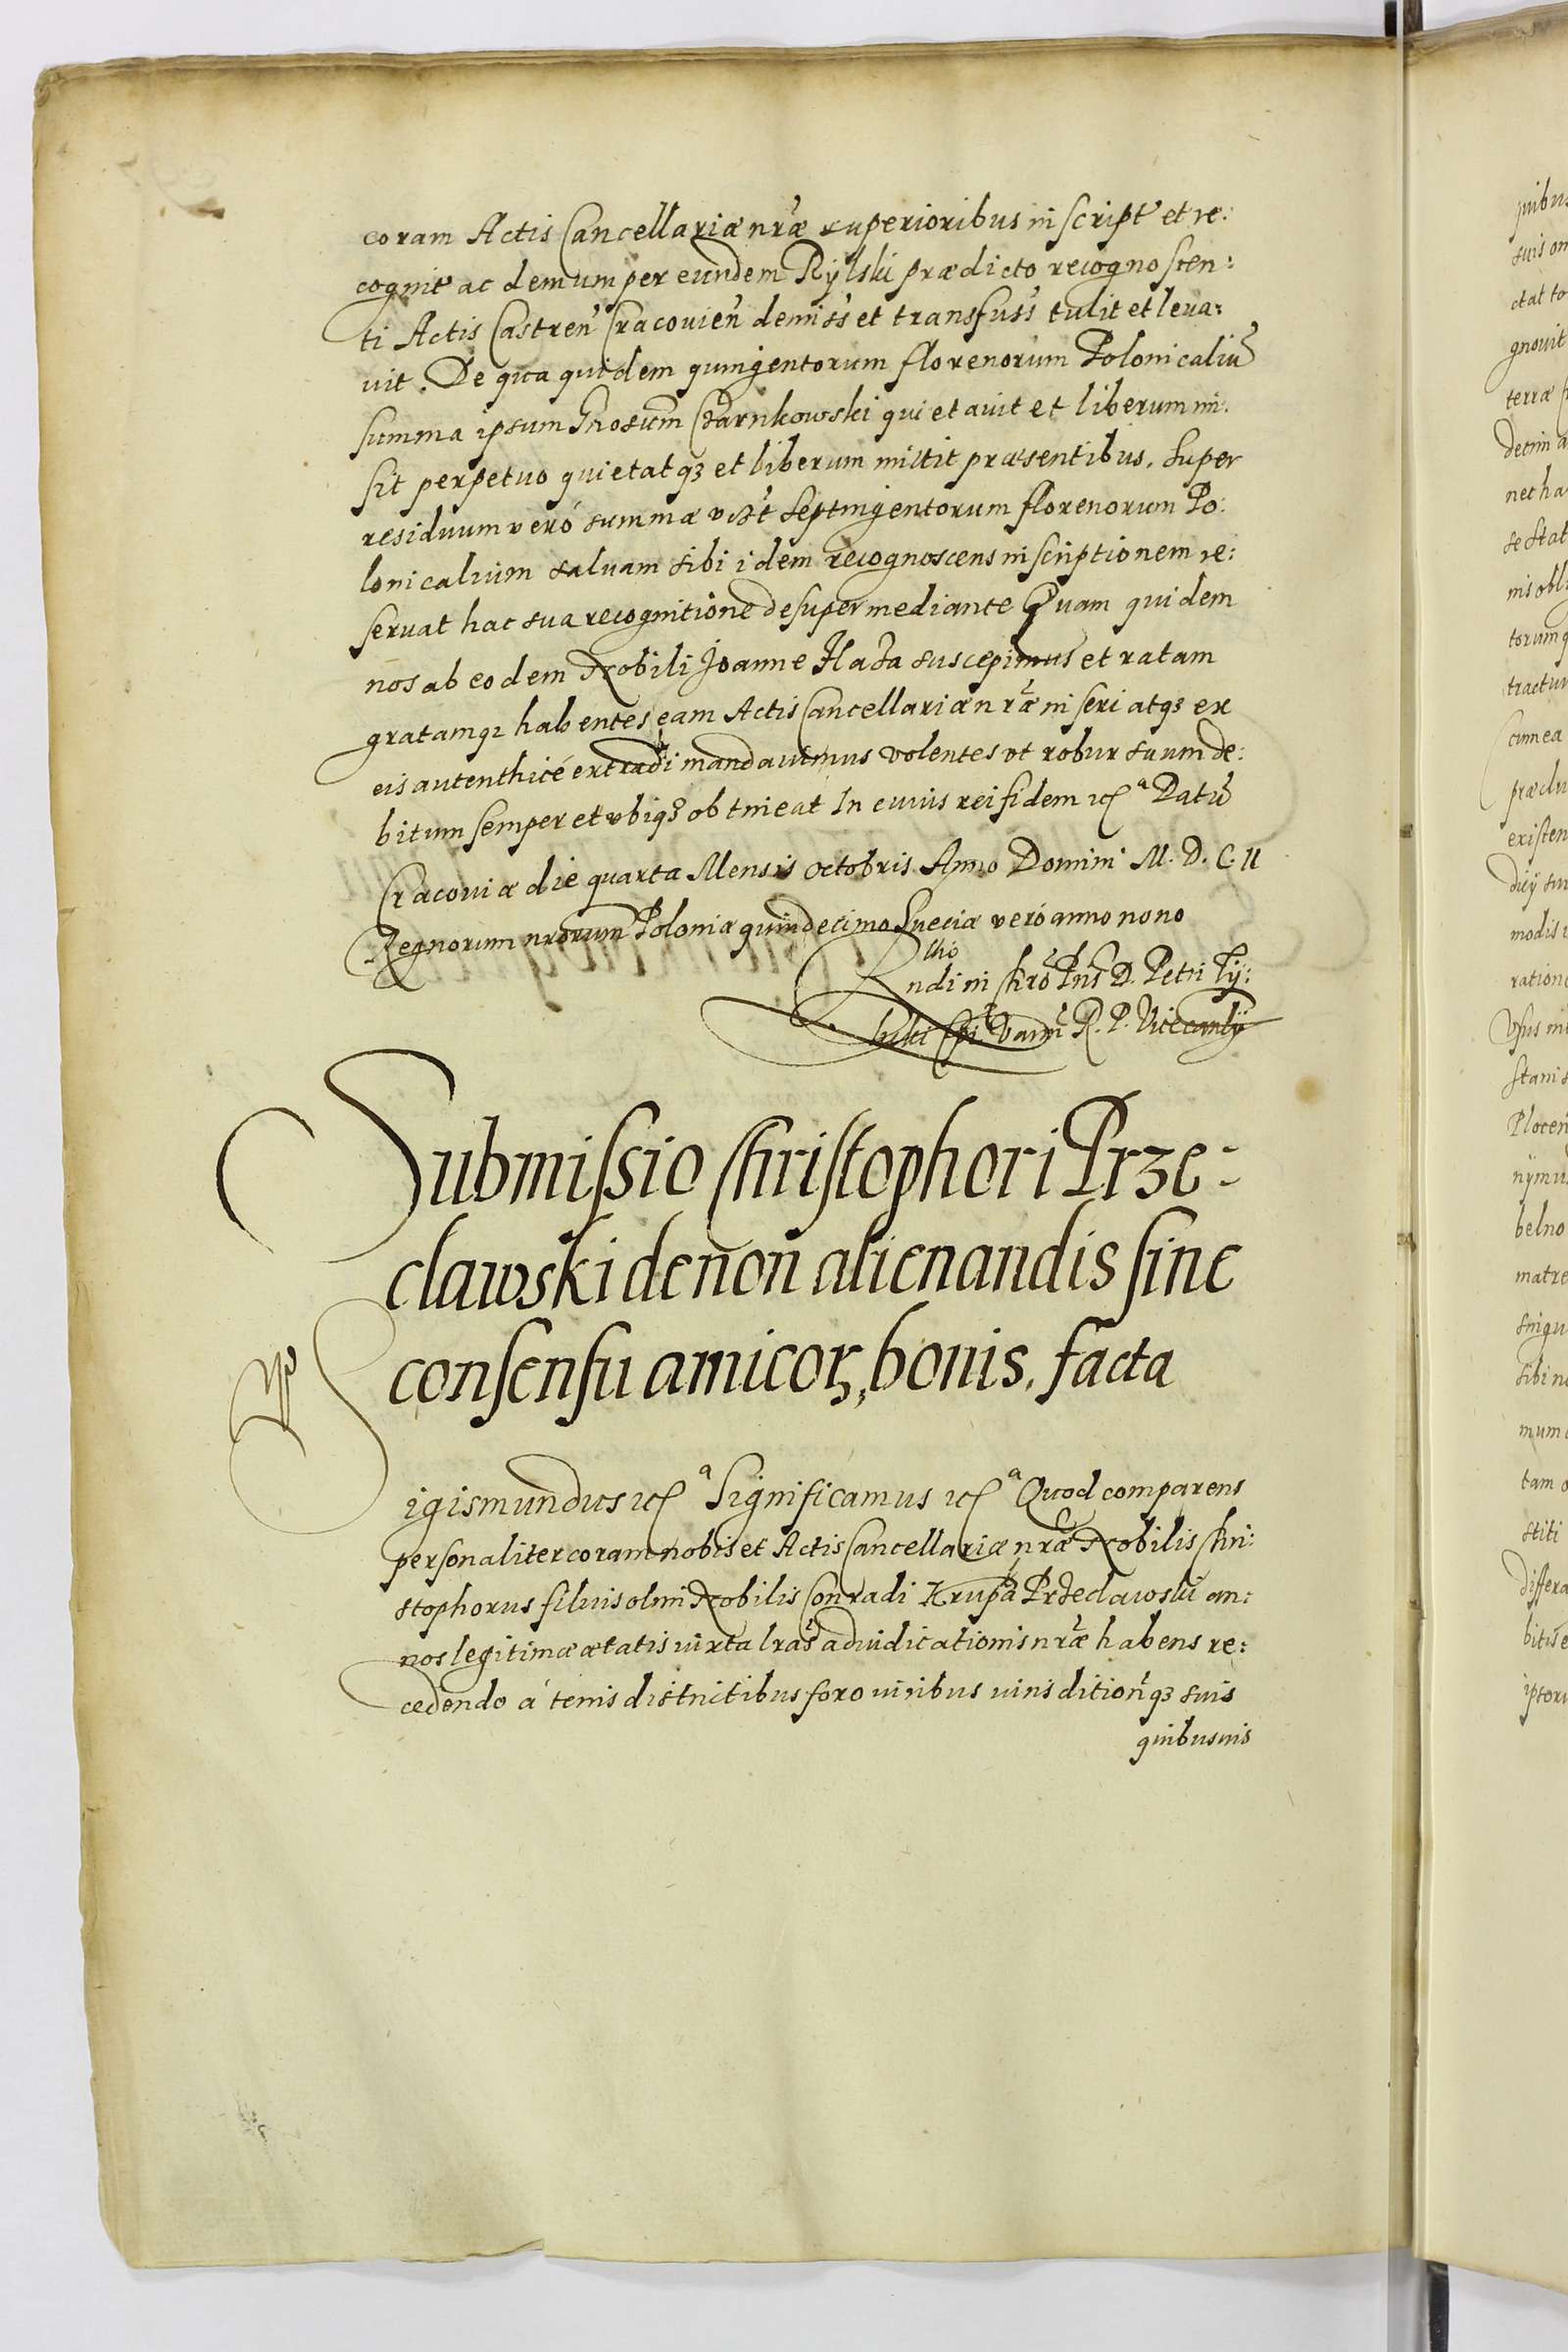 coram Actis Cancellariæ nrǽ superioribus inscript et re:
cognit ac demum per eundem Rylski prædicto recognoscen:
ti Actis Castren Cracouien demiss et transfuss tulit et leua:
uit. De qua quidem quingentorum florenorum Polonicaliũ
summa ipsum Gnosum Czarnkowski quietauit et liberum mi:
sit perpetuo quietatqȝ et liberum mittit præsentibus. Super
residuum veró summæ vȝt Septingentorum florenorum Po:
lonicalium saluam sibi idem recognoscens inscriptionem re:
seruat hac sua recognitione desuper mediante Quam quidem
nos ab eodem Nobili Joanne Haza suscepimus et ratam
gratamqȝ habentes eam Actis Cancellariæ nrǽ inseri atqȝ ex
eis autenthicé extradi mandauimus volentes vt robur suum de:
bitum semper et vbiqȝ obtineat In cuius rei fidem etcª Datũ
Cracouiæ die quarta Mensis Octobris Anno Domini M. D. C. II
Regnorum nrorum Poloniæ quindecimo Sueciæ veró anno nono
Rndi in Chro Pris D. Petri Ty:
licki Epi Varm R. P. Vicecanlÿ
Submissio Christophori Prze-
clawski de non alienandis sine
consensu amicorꝝ, bonis. facta
Sigismundus etcª Significamus etcª Quod comparens
personaliter coram nobis et Actis Cancellariæ nrǽ Nobilis Chri:
stophorus filius olim Nobilis Conradi Krupa Przeclawski an:
nos legitimæ ætatis iuxta lras adiudicationis nrǽ habens re:
cedendo á terris districtibus foro iuribus iurisditionqȝ suis
quibusuis